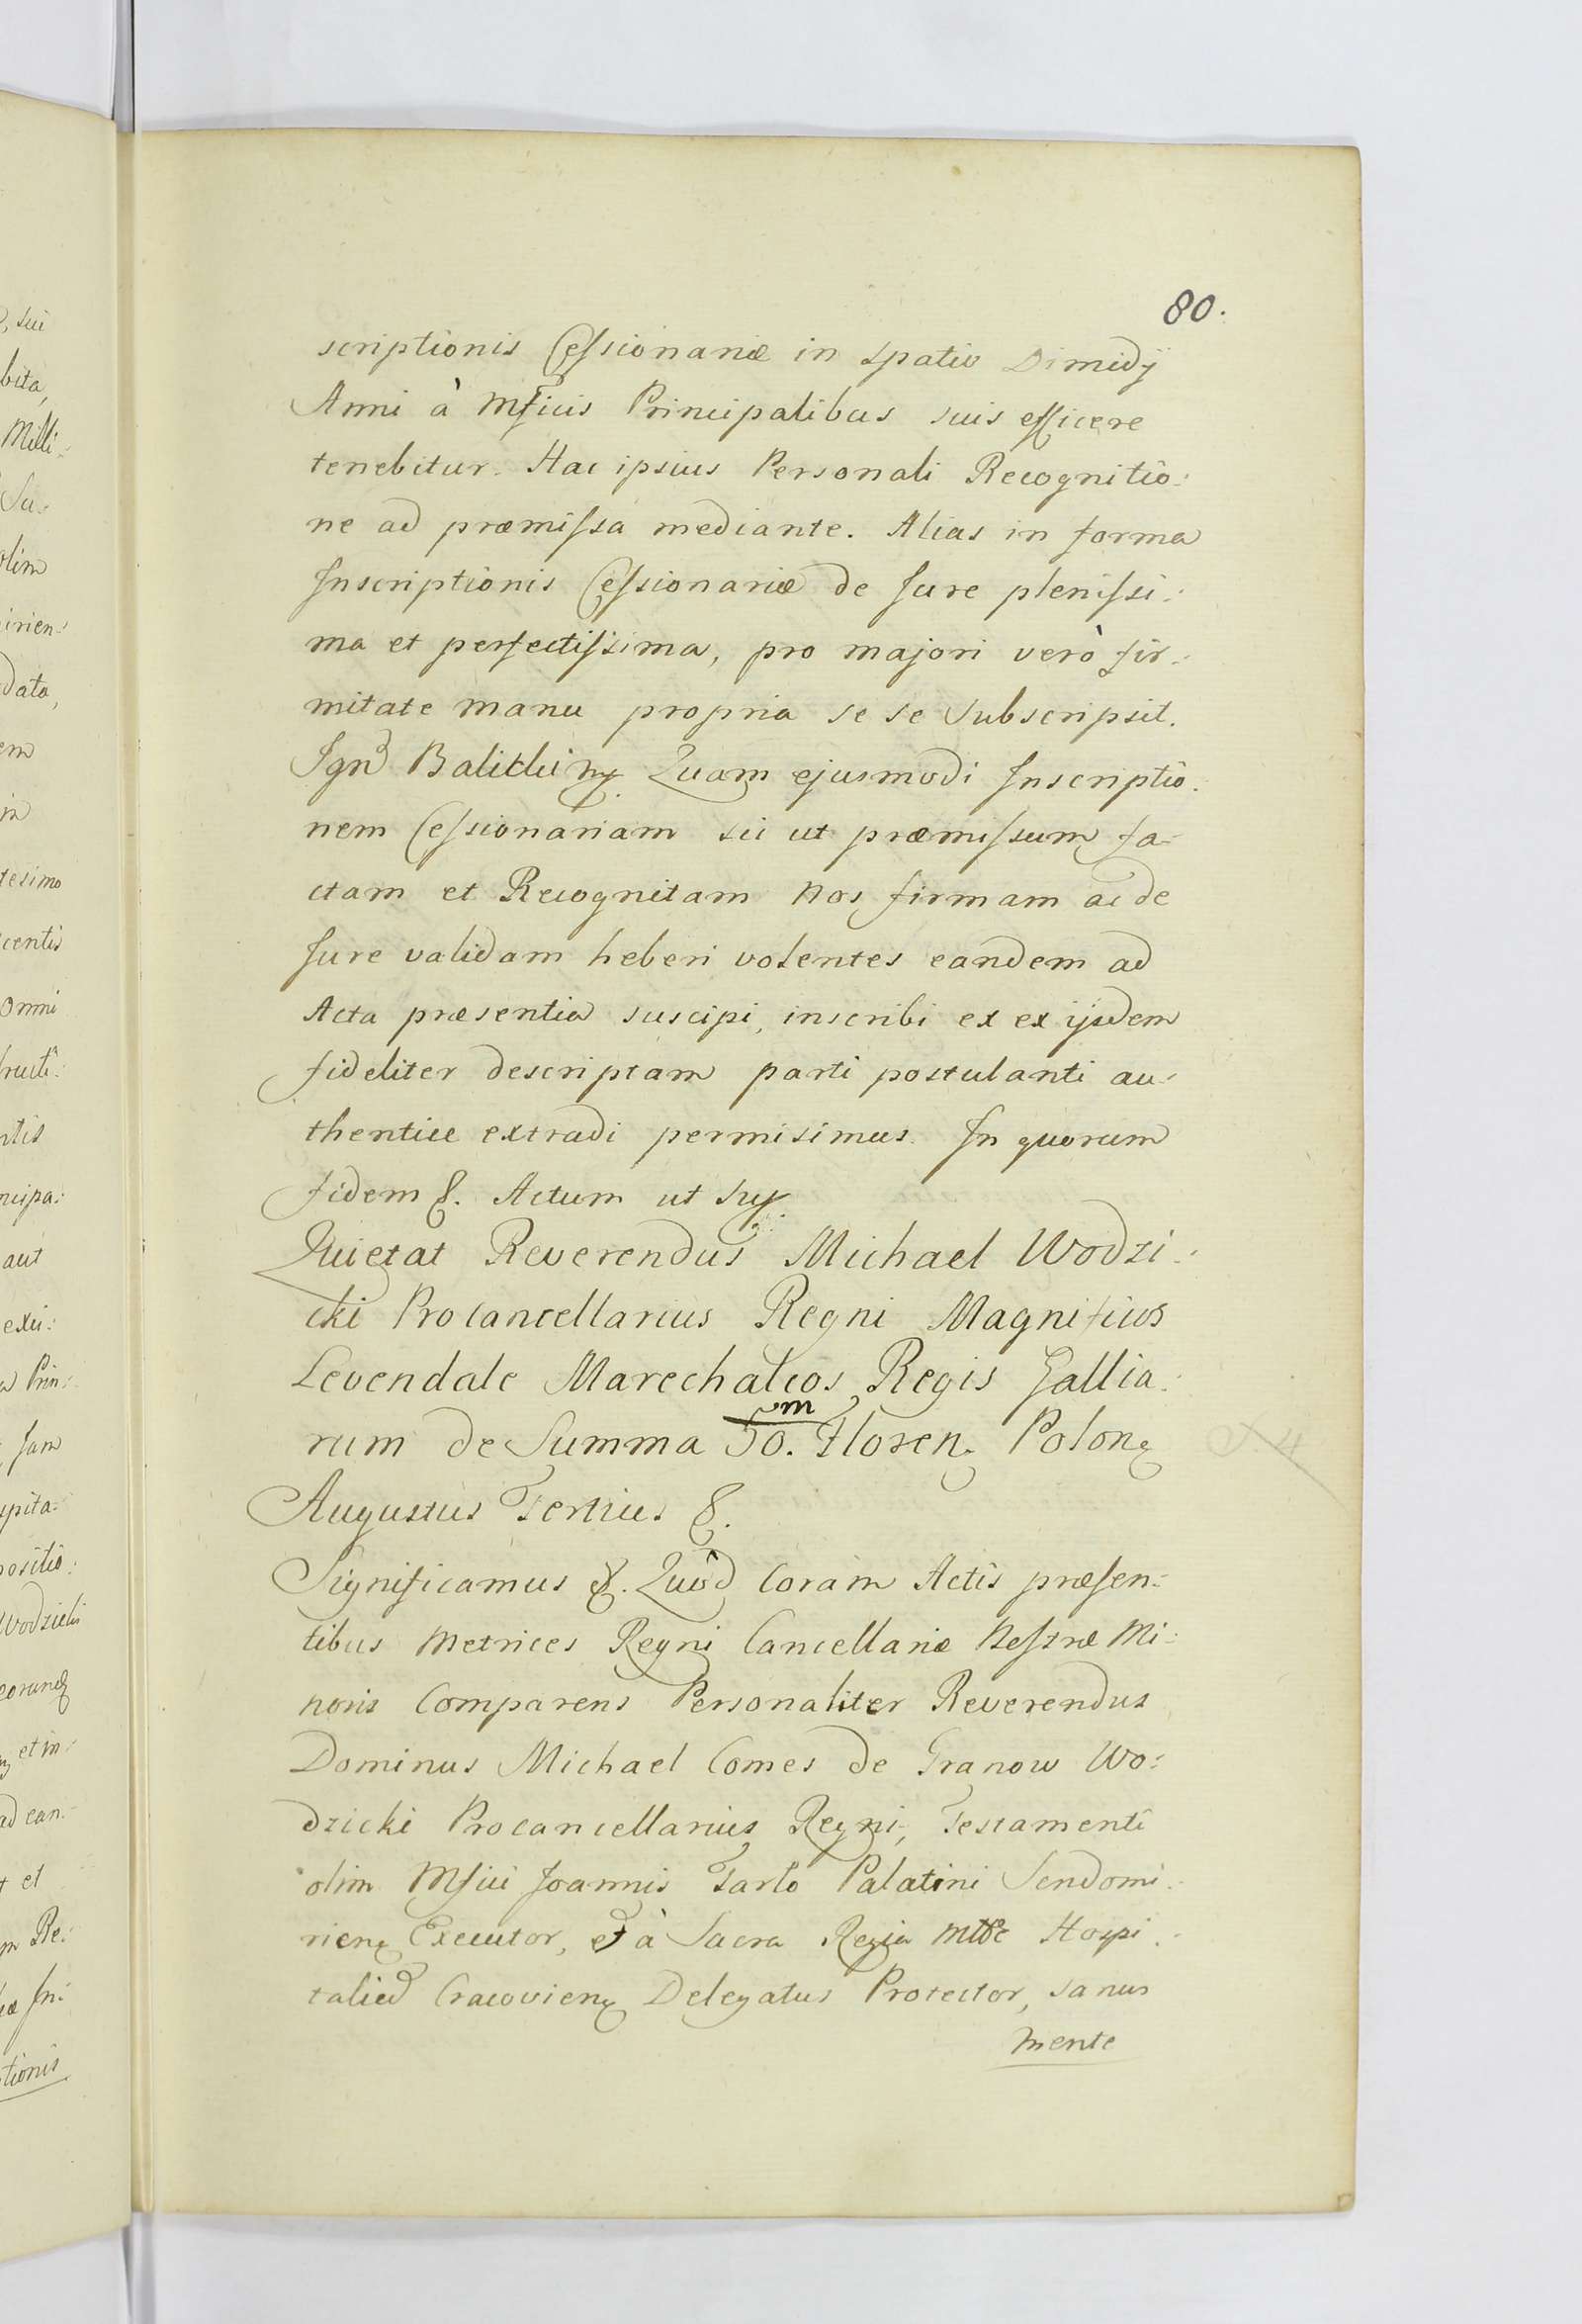 80.
scriptionis Cessionariæ in spatio Dimidÿ
Anni à Mficis Principalibus suis efficere
tenebitur. Hac ipsius Personali Recognitio:
ne ad præmissa mediante. Alias in forma
Inscriptionis Cessionariæ de Jure plenissi:
ma et perfectissima, pro majori verò fir:
mitate manu propria se se subscripsit.
Ign Quam ejusmodi Inscriptio:
nem Cessionariam sic ut præmissum fa-
ctam et Recognitam nos firmam ac de
Jure validam heberi volentes eandem ad
Acta præsentia suscipi, inscribi ex ex ijsdem
fideliter descriptam parti postulanti au:
thentice extradi permisimus. In quorum
fidem &. Actum ut sup.
Quietat Reverendus Michael Wodzi:
cki Procancellarius Regni Magnificos
Levendale Marechalcos Regis Gallia:
rum de Summa 50.m Floren. Polon.
Augustus Tertius &.
Significamus &. Quòd Coram Actis præsen:
tibus Metrices Regni Cancellariæ Nostræ Mi:
noris Comparens Personaliter Reverendus
Dominus Michael Comes de Granow Wo:
dzicki Procancellarius Regni, Testamenti
olim Mfici Joannis Tarło Palatini Sendomi:
rien. Executor, et à Sacra Regia Mtte Hospi:
talied Cracovien. Delegatus Protector, sanus
mente
sui
bita,
Milli:
Su:
olim
irien:
data,
em
in
tesimo
centis
omni
ructi:
ntis
ncipa:
aut
exci:
Prin:
Jam
spita:
positio:
Wodzicki
et in:
ad ean:
et
Re:
In:
tionis